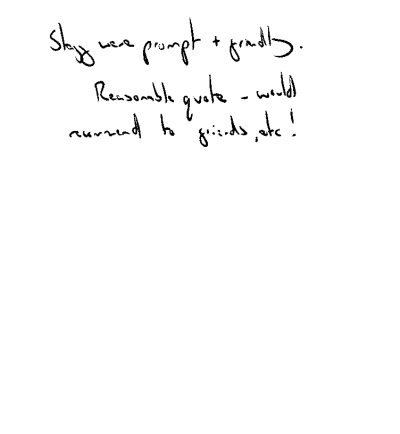 Staff were prompt + friendly.
Reasonable quote - would
recommend to friends, etc!